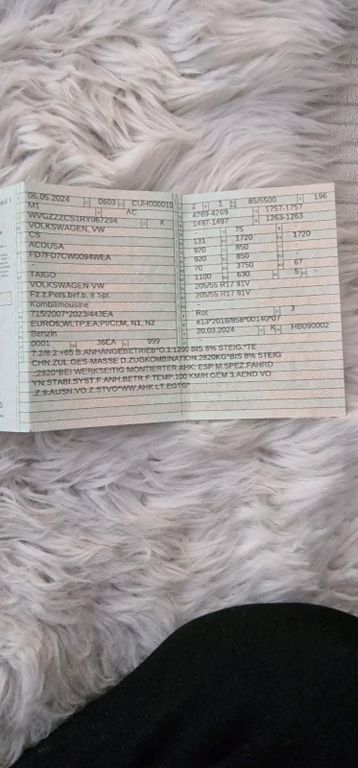 06.05.2024 0603 CUH000010
M1 AC
WVGZZZCS1RY067294 X
VOLKSWAGEN, VW
CS
ACDUSA
FD7FD7CW0094WEA
TAIGO
VOLKSWAGEN-VW
Fz.z.Pers.bef.b. 8 Spl.
Kombilimousine
715/2007*2023/443EA
EURO6;WLTP;EA;PI/CI;M, N1, N2
Benzin
0001 36EA 999
2 1 85/5500 196
4269-4269 1757-1757
1497-1497 1263-1263
75
131 1720 1720
920 850
920 850
70 3750 67
1100 630 5
205/55 R17 91V
205/55 R17 91V
- -
Rot 3
e13*2018/858*00140*07
20.03.2024 K HB090002
7.2/8.2:+65 B.ANHÄNGEBETRIEB*O.1:1200 BIS 8% STEIG.*TE
CHN.ZUL.GES-MASSE D.ZUGKOMBINATION:2820KG*BIS 8% STEIG
.:2920*BEI WERKSEITIG MONTIERTER AHK: ESP M.SPEZ.FAHRD
YN.STABI.SYST.F.ANH.BETR.F.TEMP.100 KM/H GEM.3.AEND.VO
.Z.9.AUSN.VO.Z.STVO*WW.AHK LT.EGTG*